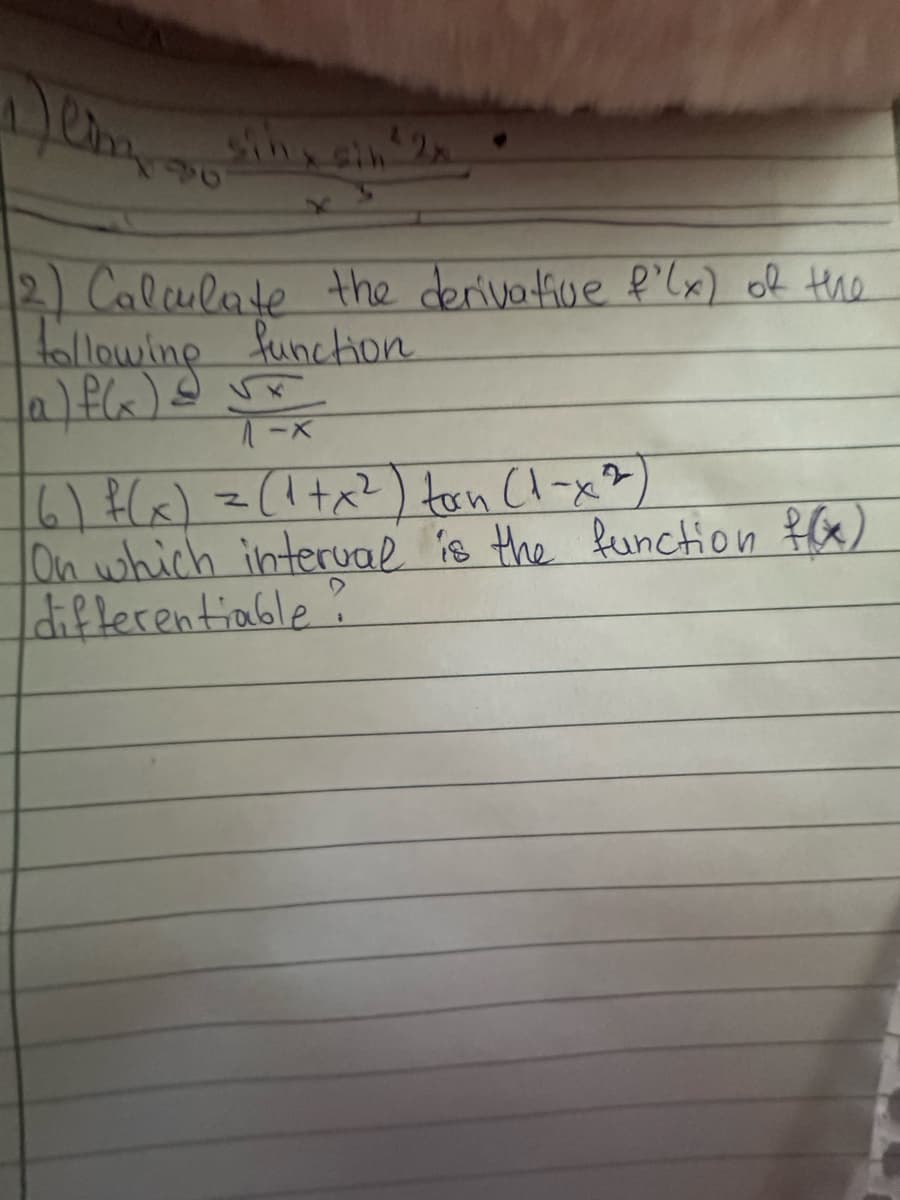 1) lim x→0 sin x sin² 2x / x³
2) Calculate the derivative f'(x) of the
following function
a) f(x) = √x / 1-x
b) f(x) = (1+x²) tan (1-x²)
On which interval is the function f(x)
differentiable?